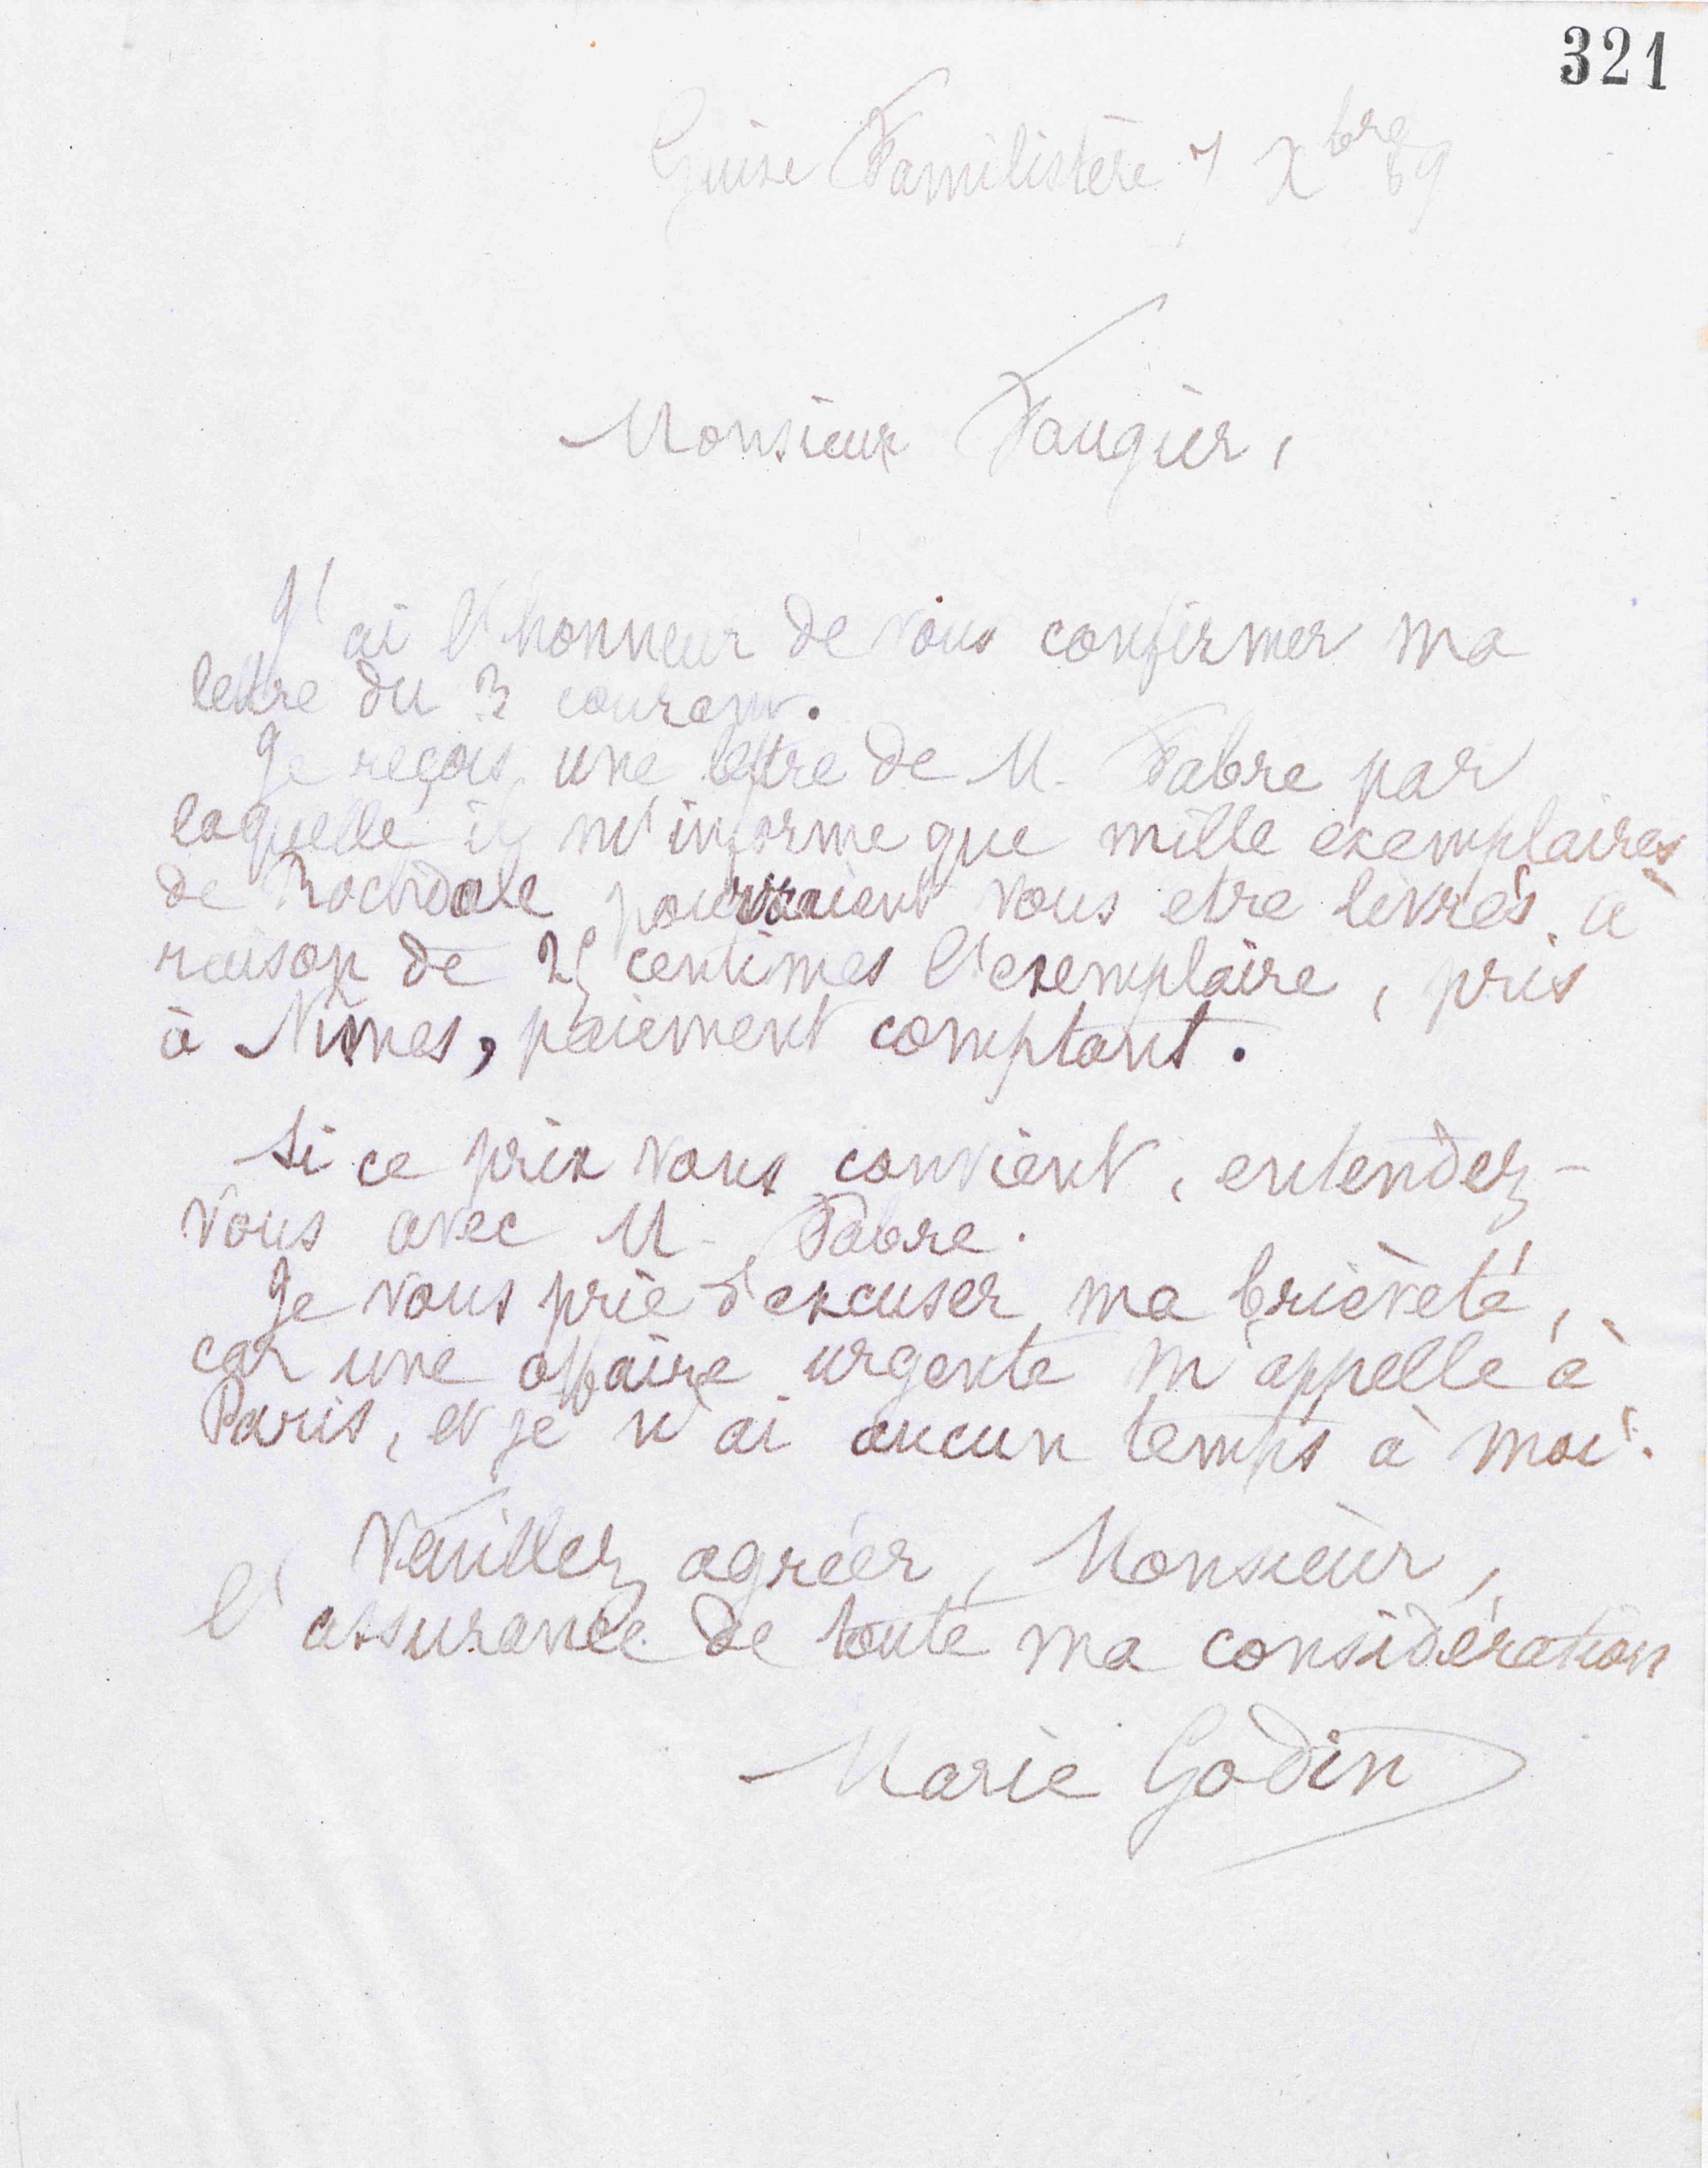 321
Guise Familistère 7 Xbre 89
Monsieur Faugier,
J'ai l'honneur de vous confirmer ma
lettre du 3 courant.
Je reçois une lettre de M. Fabre par
laquelle il m'informe que mille exemplaires
de Rochdale pourraient vous etre livrés à
raison de 25 centimes l'exemplaire, pris
à Nimes, paiement comptant.
Si ce prix vous convient, entendez-
vous avec M. Fabre.
Je vous prie d'excuser ma brièveté,
car une affaire urgente m'appelle à
Paris, et je n'ai aucun temps à moi.
Veuillez agréer, Monsieur,
l'assurance de toute ma considération
Marie Godin